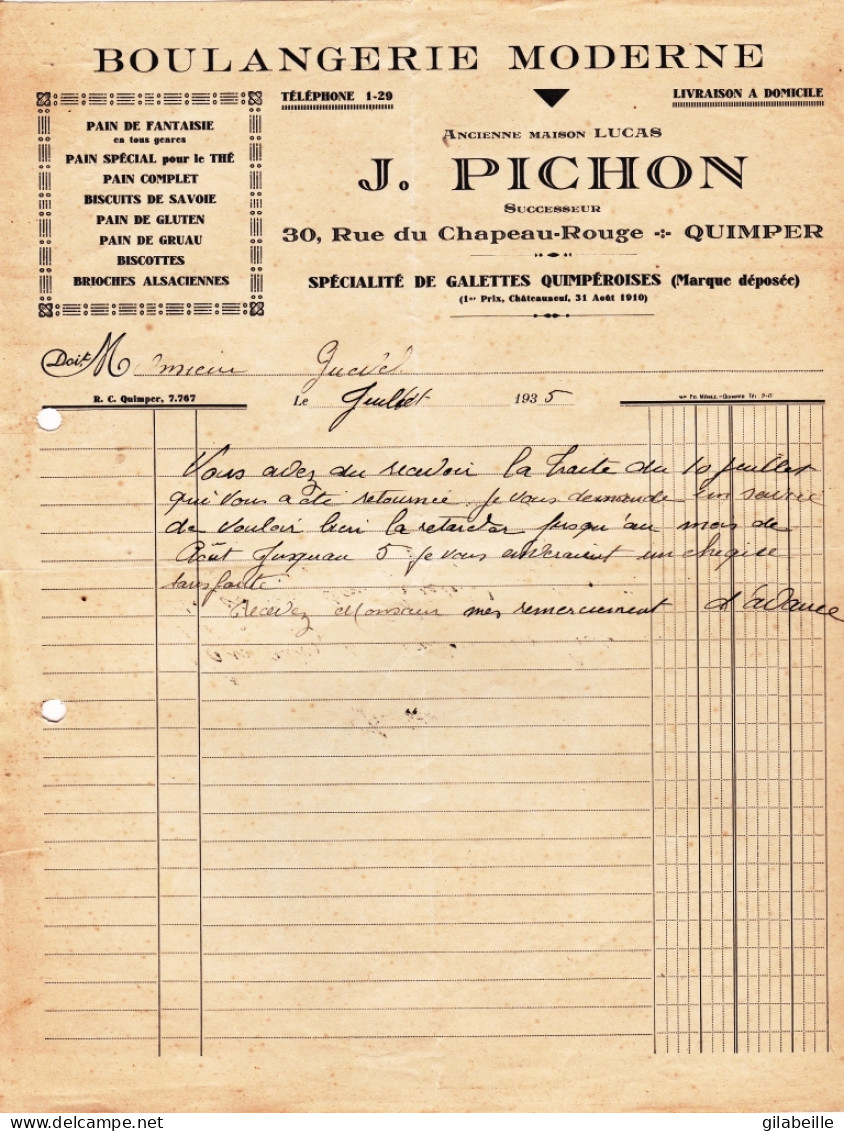 BOULANGERIE MODERNE
TÉLÉPHONE 1-29
LIVRAISON A DOMICILE
PAIN DE FANTAISIE
en tous genres
PAIN SPÉCIAL pour le THÉ
PAIN COMPLET
BISCUITS DE SAVOIE
PAIN DE GLUTEN
PAIN DE GRUAU
BISCOTTES
BRIOCHES ALSACIENNES
ANCIENNE MAISON LUCAS
J. PICHON
SUCCESSEUR
30, Rue du Chapeau-Rouge QUIMPER
SPÉCIALITÉ DE GALETTES QUIMPÉROISES (Marque déposée)
(1er Prix, Châteauneuf, 31 Août 1910)
Doit M onsieur
R. C. Quimper, 7.767
Le Juillet 1935
Vous avez du recevoir la traite du 10 juillet
qui vous a été retournée. je vous demande un
de vouloir bien la retarder jusqu'au mois de
Août jusquau 5 je vous un
sans faute
Recevez Monsieur mes remerciement d'avance
gilabeille